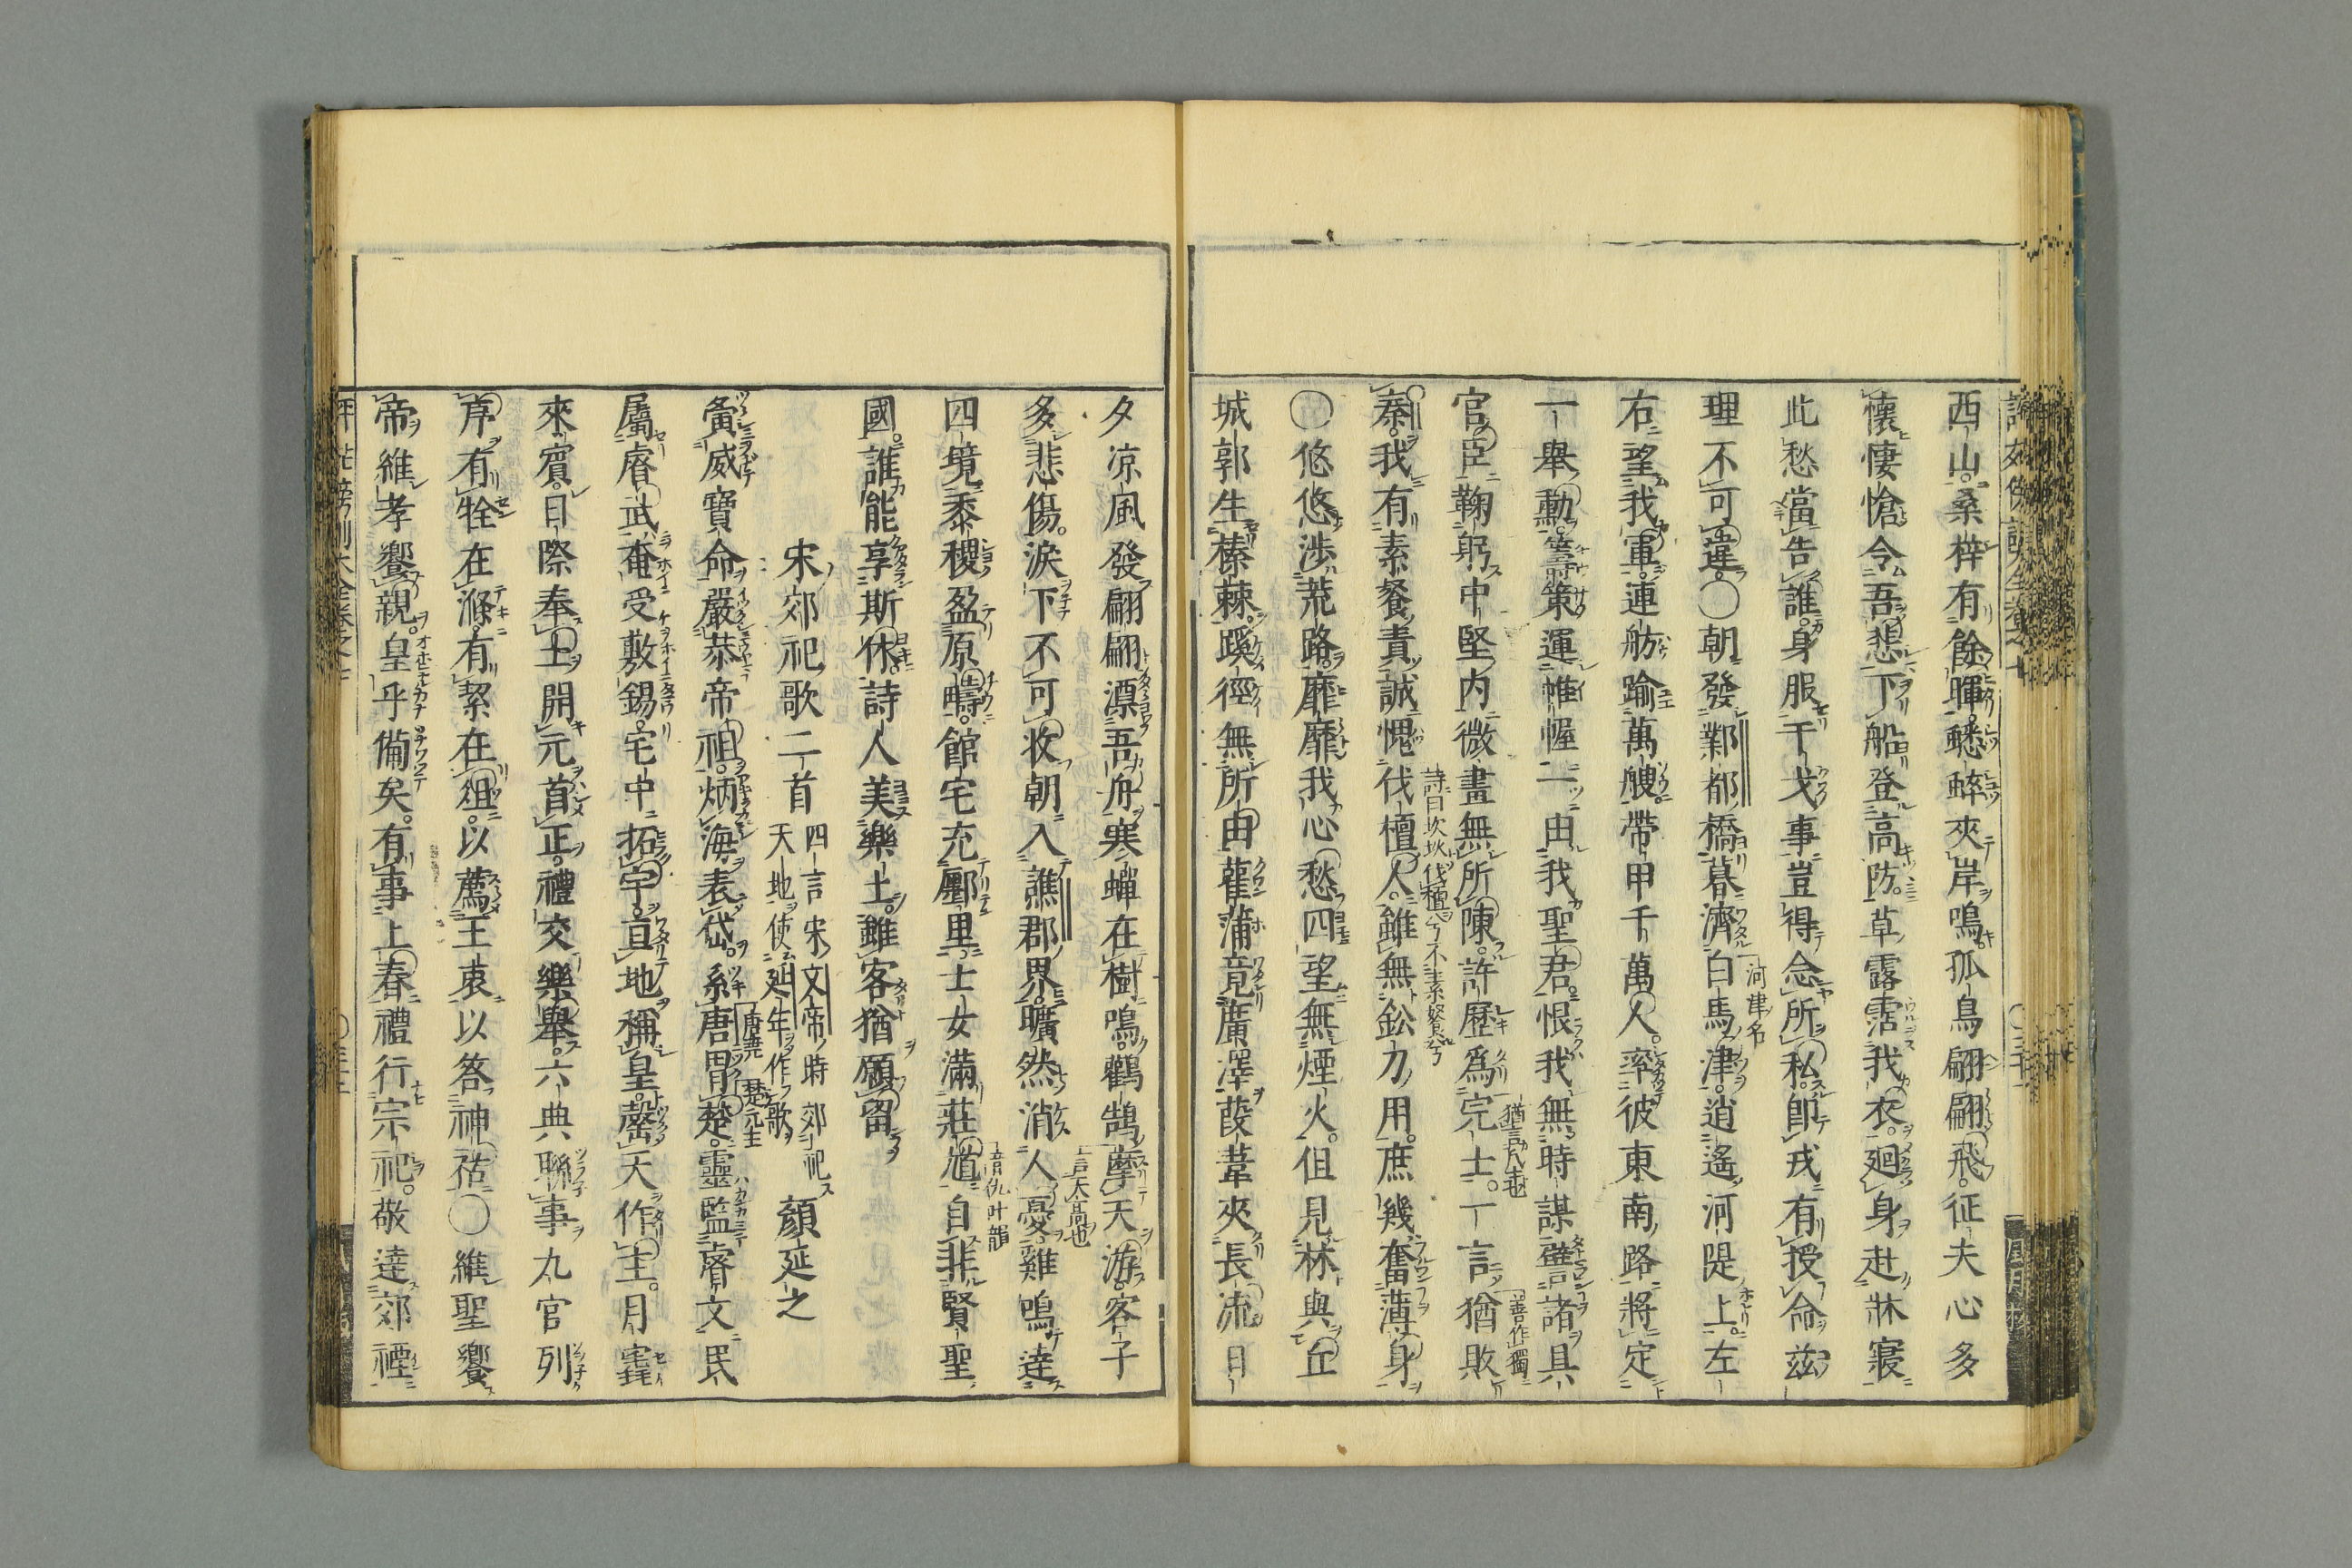 西山桑梓有餘暉蟋蟀夾岸鳴孤鳥翩翩飛征夫心多
懷悽愴令吾悲下船登高防草露霑我衣廻身赴牀寢
此愁當告誰身服干戈事豈得念所私卽戎有授命茲
理不可違〇朝發鄴都橋暮濟白馬津逍遙河隄上左
河津名
右望我軍連舫踰萬艘帶甲千萬人率彼東南路將定
一舉勳籌策運帷幄一由我聖君恨我無時謀譬諸具
官臣鞠躬中堅內微畫無所陳許歷爲完士一言猶敗
秦我有素餐責誠愧伐檀人雖無鉛刀用庶幾奮薄身
詩曰坎坎伐檀兮不素餐兮
〇悠悠涉荒路靡靡我心愁四望無煙火但見林與丘
城郭生榛棘蹊徑無所由雚蒲竟廣澤葭葦夾長流日
夕凉風發翩翩漂吾舟寒蟬在樹鳴鸛鵠摩天游客子
多悲傷淚下不可收朝入譙郡界曠然消人憂雞鳴達
四境黍稷盈原疇館宅充廛里士女滿莊馗自非賢聖
音仇叶韻
國誰能享斯休詩人美樂土雖客猶願留
宋郊祀歌二首 四言宋文帝時郊祀天地使延年作歌 顏延之
夤威寶命嚴恭帝祖炳海表岱系唐冑楚靈監睿文民
唐堯 楚元王
屬睿武奄受敷錫宅中拓宇亘地稱皇罄天作主月竁
來賓日際奉土開元首正禮交樂舉六典聯事九官列
序有牷在滌有絜在俎以薦王衷以答神祜〇維聖饗
帝維孝饗親皇乎備矣有事上春禮行宗祀敬達郊禋